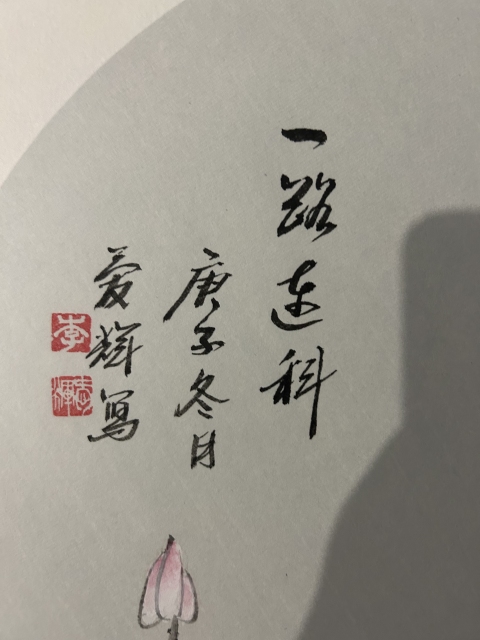 一路连科
庚子冬月
爱辉写
李